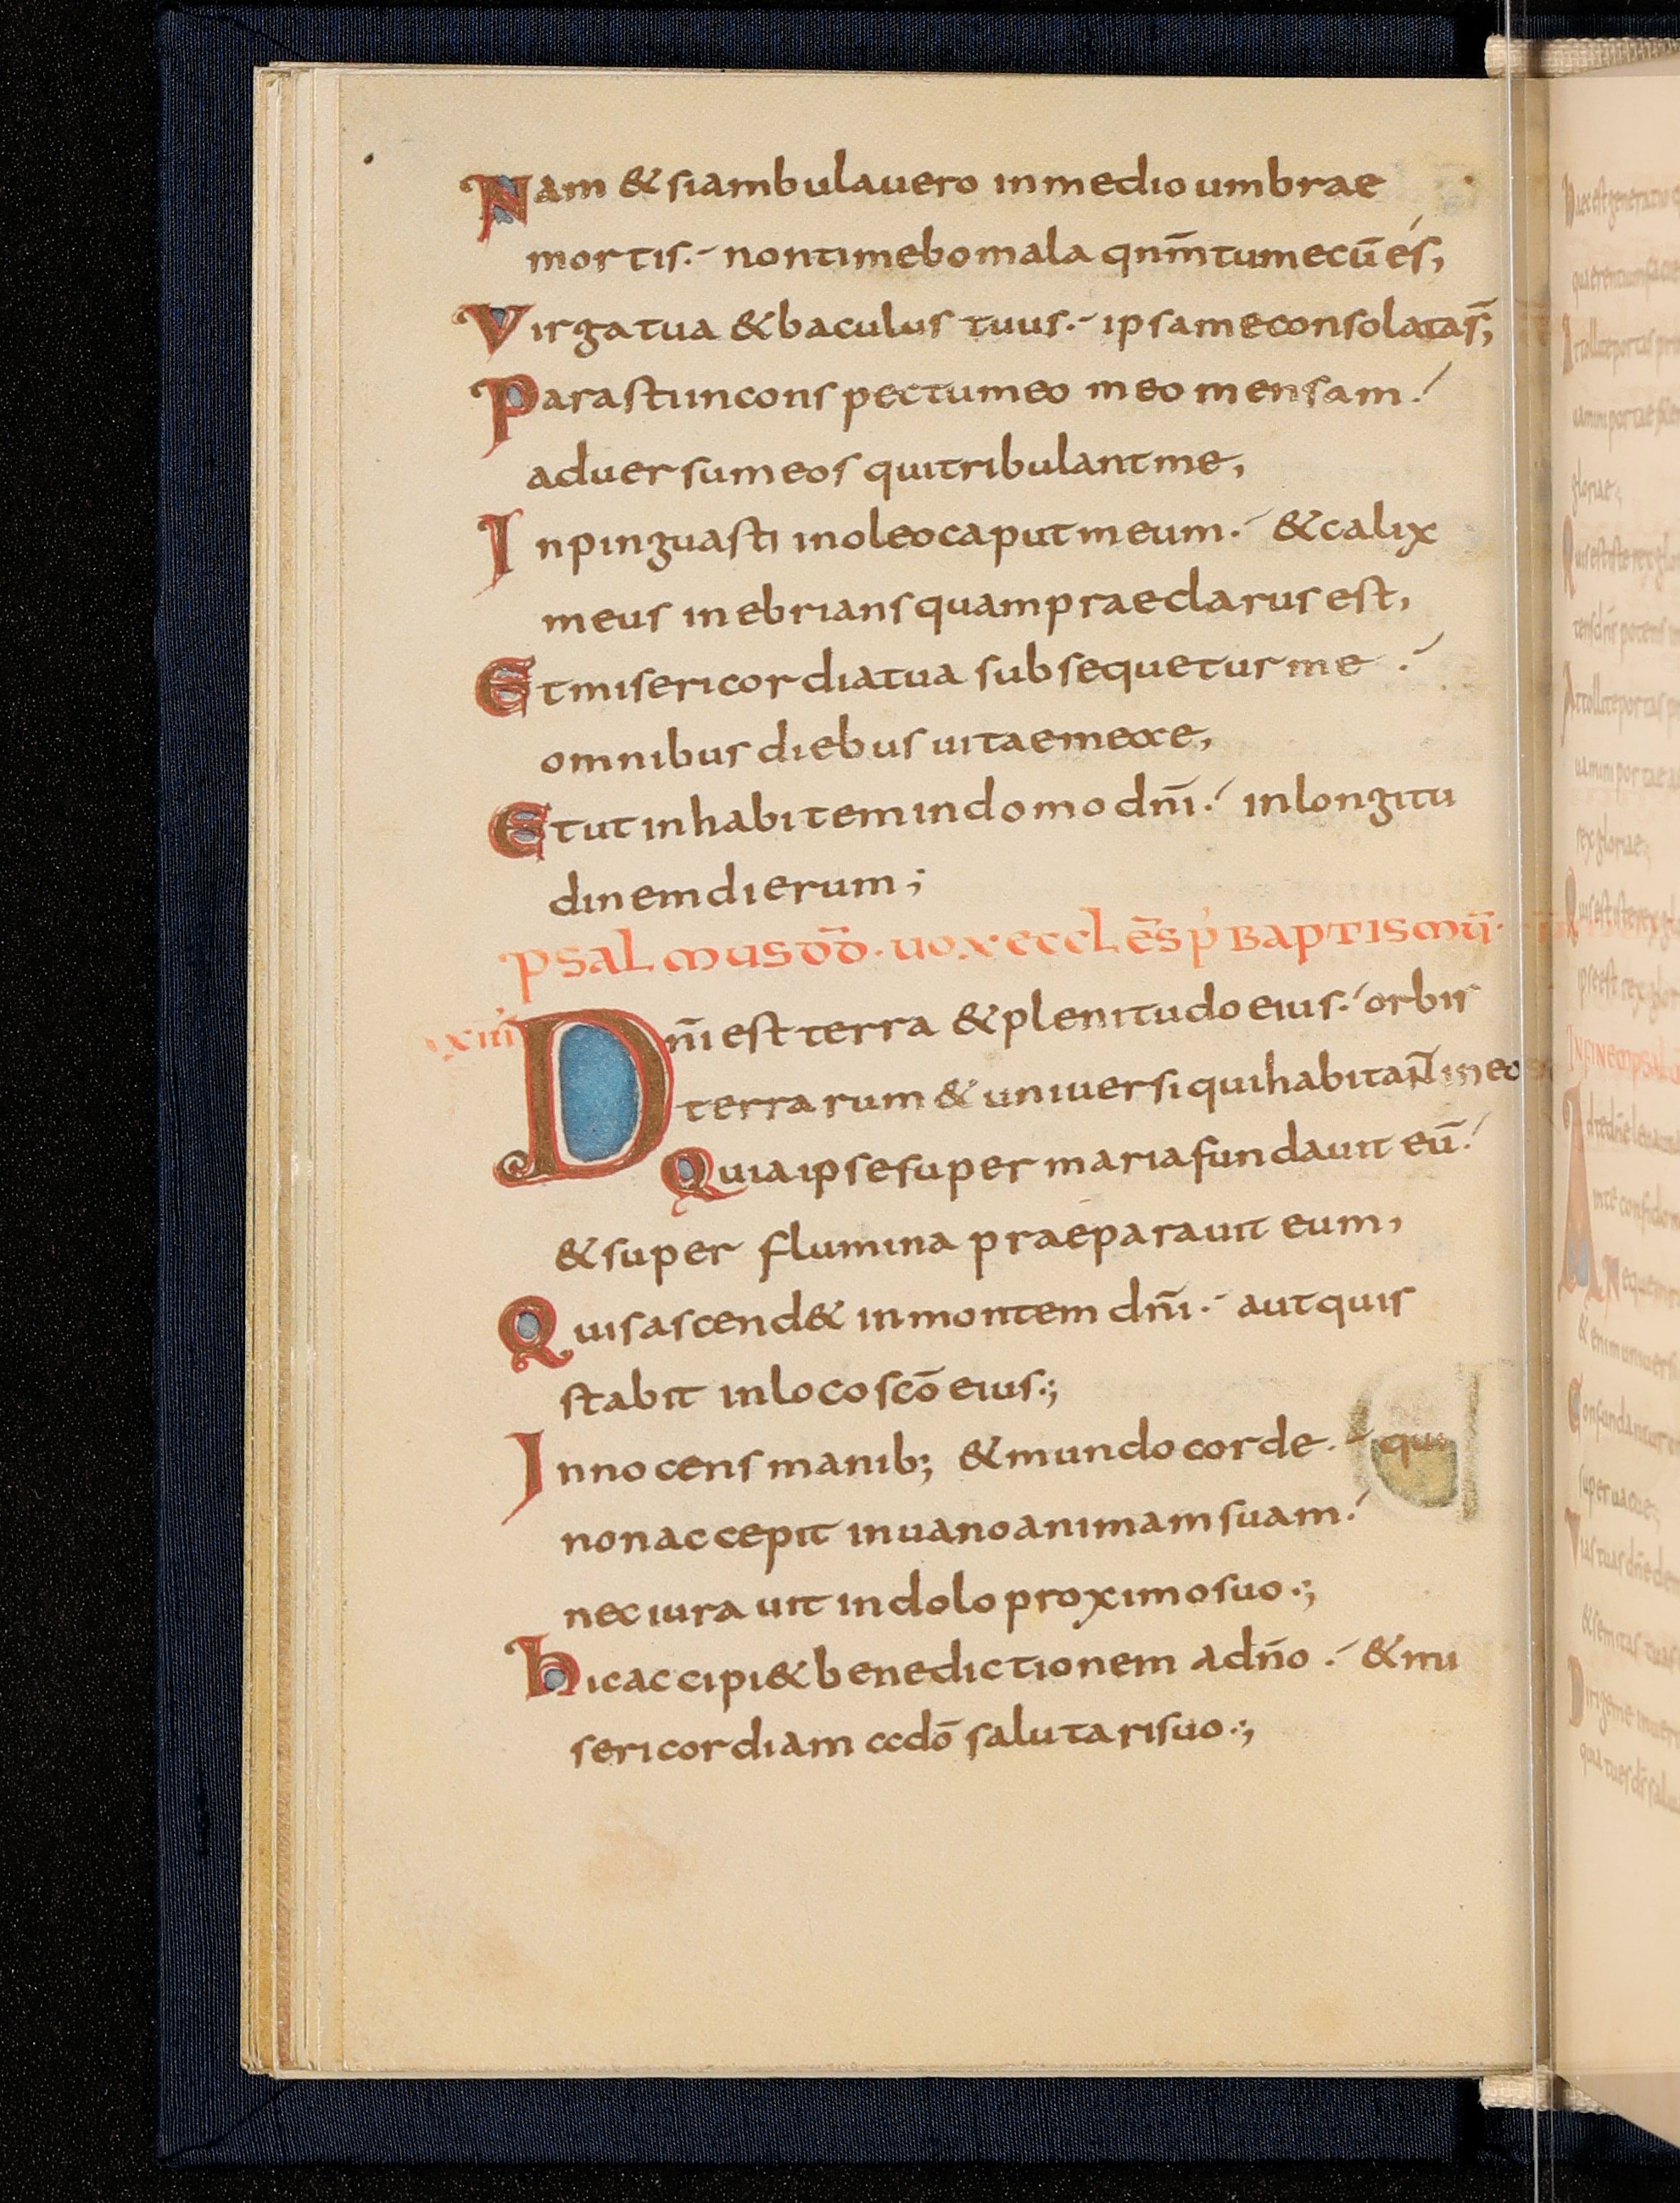 Nam & si ambulauero in medio umbrae
mortis. non timebo mala qnm̄ tu mecū es,
Virga tua & baculus tuus. ipsa me consolata s̄;
Parasti in conspectu meo meo mensam.
aduersum eos qui tribulant me,
Inpinguasti in oleo caput meum. & calix
meus inebrians quam praeclarus est,
Et misericordia tua subsequetur me.
omnibus diebus uitae meae,
Et ut inhabitem in domo dn̄i. in longitu
dinem dierum;
psalmus dd̄. uox eccl ēs p' baptismū.
xxiii
Dn̄i est terra & plenitudo eius. orbis
terrarum & uniuersi qui habitan̄t in eo
Quia ipse super maria fundauit eū.
& super flumina praeparauit eum,
Quis ascend& in montem dn̄i. aut quis
stabit in loco scō eius.;
Innocens manib; & mundo corde. qui
non accepit in uano animam suam.
nec iurauit in dolo proximo suo.;
hic accipi& benedictionem a dn̄o. & mi
sericordiam a dō salutari suo.;